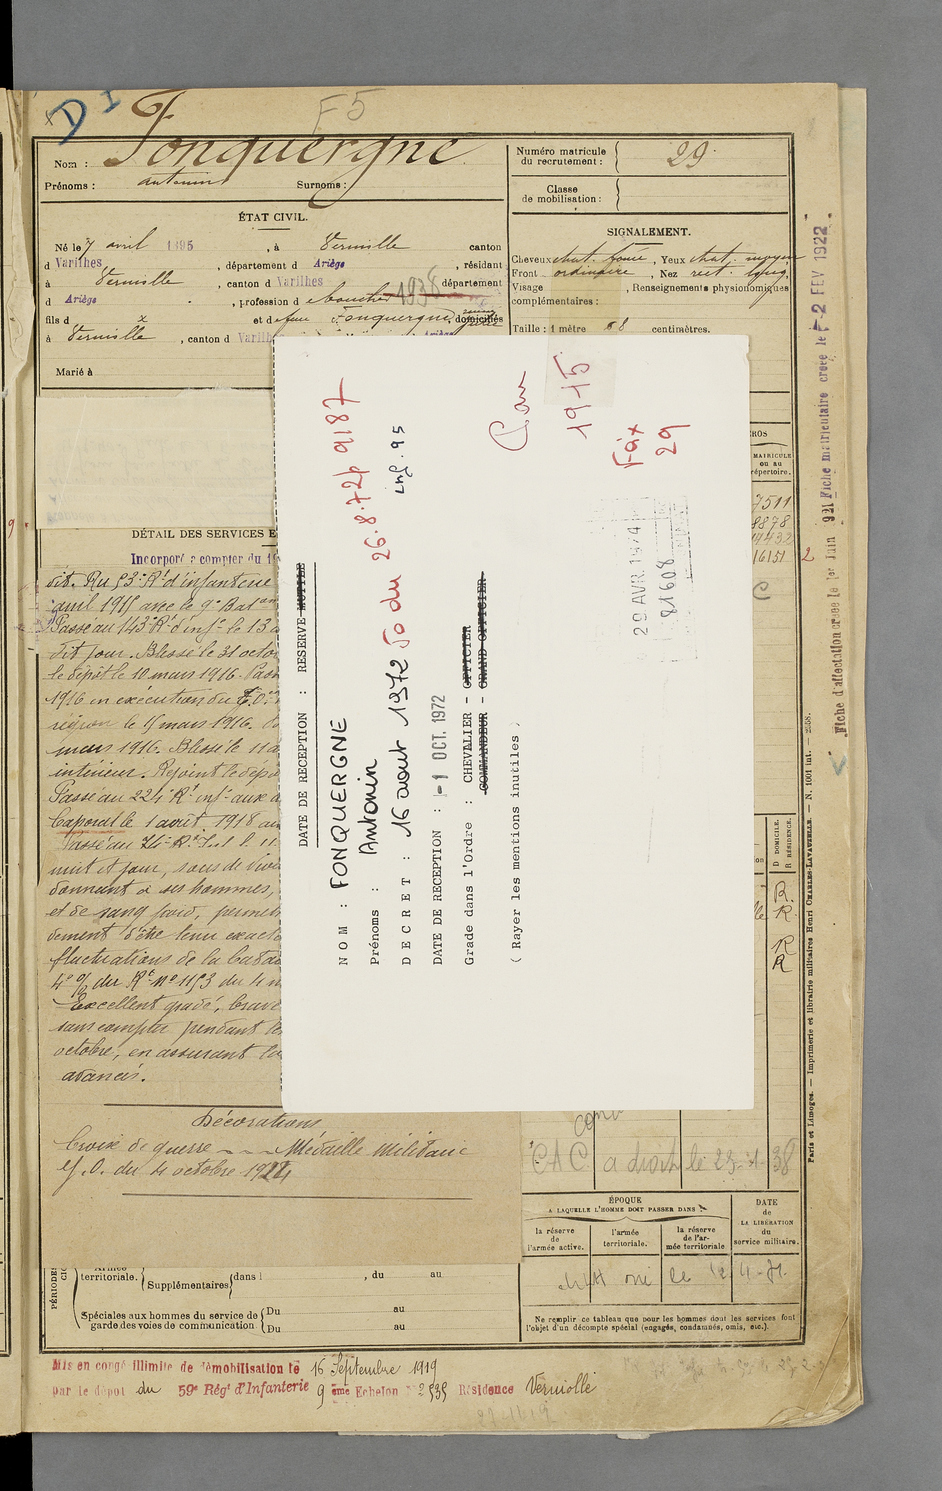 D I
F5
Nom : Fonquergne
Prénoms : antonin Surnoms :
Numéro matricule du recrutement : 29
Classe de mobilisation :
ÉTAT CIVIL.
Né le 7 avril 1895, à Verniolle canton
d Varilhes, département d Ariège, résidant
à Verniolle, canton d Varilhes département
d Ariège, profession de boucher 1938
fils d x et de feue Fonquergne, domiciliés
à Verniolle, canton d
Marié à
SIGNALEMENT.
Cheveux chat. foncé, Yeux chat. moyen
Front ordinaire, Nez rect. long,
Visage, Renseignements physionomiques
complémentaires :
Taille : 1 mètre 68 centimètres.
MATRICULE
ou au
répertoire.
7511
8878
14432
16151 2
C
DÉTAIL DES SERVICES E
Incorporé à compter du
dit. Au 53e Rt d'infanterie
avril 1915 avec le 9e Baton
Passé au 143e Rt d'infie le 13
dit jour. Blessé le 31 octo
le dépôt le 10 mars 1916. Pass
1916 en exécution du
région le 15 mars 1916.
mars 1916. Blessé le 11 a
intérieur. Rejoint le dépô
Passé au 224e Rt infie aux a
Caporal le 1 août 1918
Passé au 74e Rt Inf le 11
nuit et jour, sous de
donnant à ses hommes,
et de sang froid, permet
dement d'être tenu exacte
fluctuations de la bata
4e og du Rt no 1153 du 4
Excellent gradé, brave
sans compter pendant les
octobre, en assurant
avancés.
Décorations
Croix de guerre - - - Médaille Militaire
J.O. du 4 octobre 1924
DATE DE RECEPTION : RESERVE MUTILE
NOM : FONQUERGNE
Prénoms : Antonin
DECRET : 16 aout 1972 JO du 26.8.72 p 9187
inf. 95
DATE DE RECEPTION : -1 OCT. 1972
Grade dans l'Ordre : CHEVALIER - OFFICIER
COMMANDEUR - GRAND OFFICIER
( Rayer les mentions inutiles )
1915
Foix
29
29 AVR. 1974
81608
D DOMICILE.
R RÉSIDENCE.
R.
R.
R
R
CAC a droit le 38
ÉPOQUE
A LAQUELLE L'HOMME DOIT PASSER DANS
la réserve de l'armée active.
l'armée territoriale.
la réserve de l'armée territoriale
DATE de LA LIBÉRATION du service militaire.
Ne remplir ce tableau que pour les hommes dont les services font
l'objet d'un décompte spécial (engagés, condamnés, omis, etc.).
territoriale. Supplémentaires dans l, du au
Spéciales aux hommes du service de Du au
garde des voies de communication Du au
Mis en congé illimité de démobilisation le 16 Septembre 1919
par le dépôt du 59e Régt d'Infanterie 9 ème Echelon 2535 Résidence Verniolle
Fiche d'affectation créée le 1er Juin 921 Fiche matriculaire créée le -2 FEV 1922
Paris et Limoges. — Imprimerie et librairie militaires Henri CHARLES-LAVAUZELLE. — N. 1001 int. — 2558.